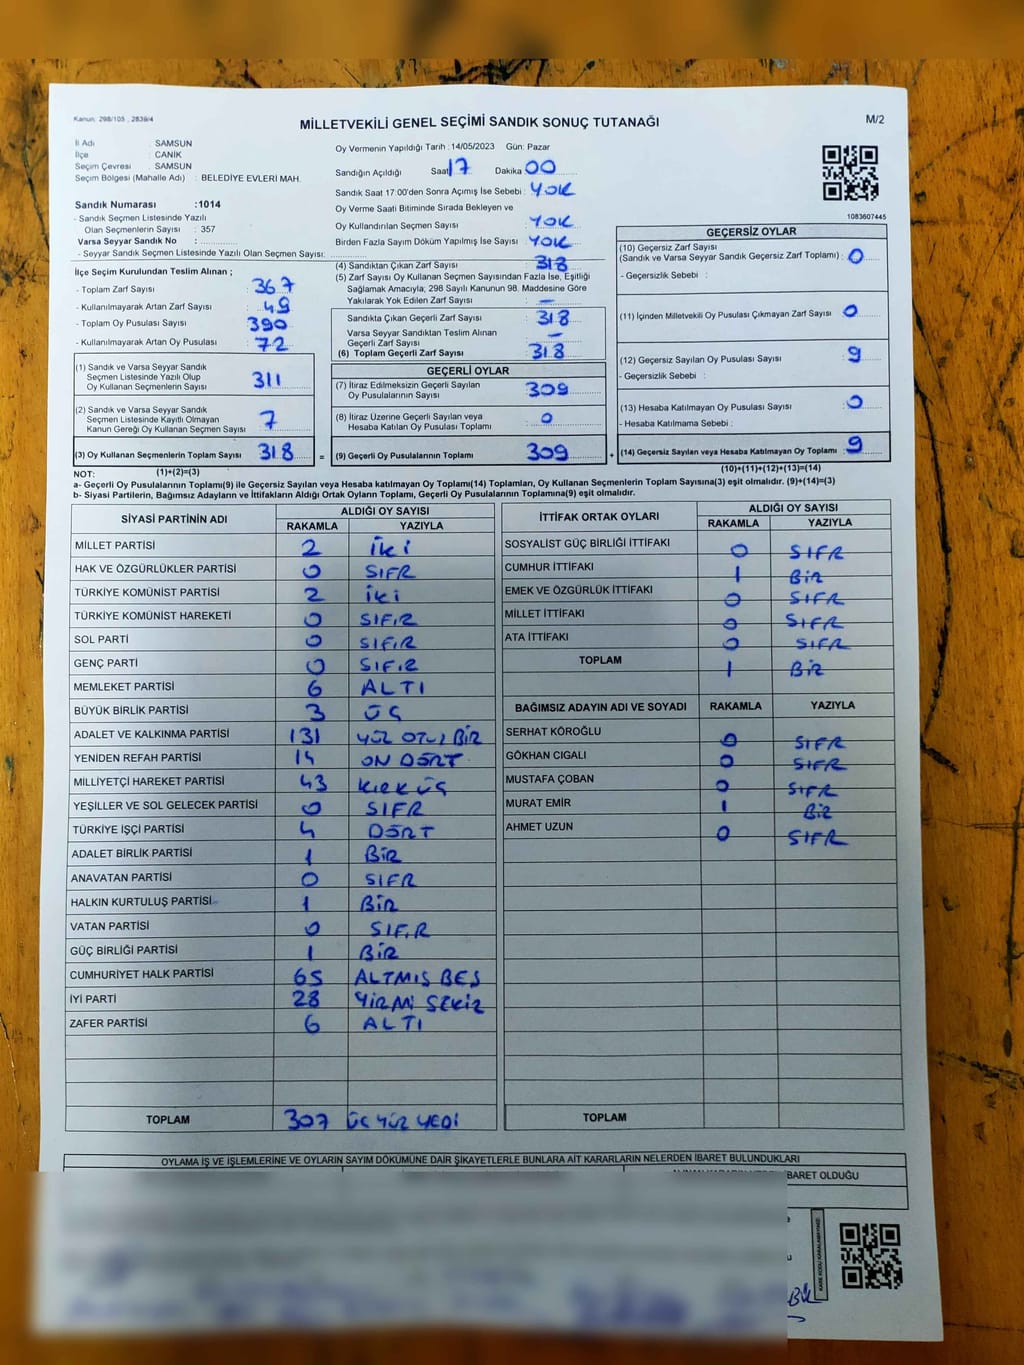 Kanun: 298/105 , 2839/4
MİLLETVEKİLİ GENEL SEÇİMİ SANDIK SONUÇ TUTANAĞI
M/2
İl Adı : SAMSUN
İlçe : CANİK
Seçim Çevresi : SAMSUN
Seçim Bölgesi (Mahalle Adı) : BELEDİYE EVLERİ MAH.
Sandık Numarası :1014
- Sandık Seçmen Listesinde Yazılı
Olan Seçmenlerin Sayısı : 357
Varsa Seyyar Sandık No :
- Seyyar Sandık Seçmen Listesinde Yazılı Olan Seçmen Sayısı:
Oy Vermenin Yapıldığı Tarih :14/05/2023 Gün: Pazar
Sandığın Açıldığı Saat 17 Dakika 00
Sandık Saat 17:00'den Sonra Açımış İse Sebebi : YOK
Oy Verme Saati Bitiminde Sırada Bekleyen ve
Oy Kullandırılan Seçmen Sayısı : YOK
Birden Fazla Sayım Döküm Yapılmış İse Sayısı : YOK
1083607445
İlçe Seçim Kurulundan Teslim Alınan ;
- Toplam Zarf Sayısı : 367
- Kullanılmayarak Artan Zarf Sayısı : 49
- Toplam Oy Pusulası Sayısı : 390
- Kullanılmayarak Artan Oy Pusulası : 72
(1) Sandık ve Varsa Seyyar Sandık
Seçmen Listesinde Yazılı Olup
Oy Kullanan Seçmenlerin Sayısı 311
(2) Sandık ve Varsa Seyyar Sandık
Seçmen Listesinde Kayıtlı Olmayan
Kanun Gereği Oy Kullanan Seçmen Sayısı 7
(3) Oy Kullanan Seçmenlerin Toplam Sayısı 318 =
(4) Sandıktan Çıkan Zarf Sayısı 318
(5) Zarf Sayısı Oy Kullanan Seçmen Sayısından Fazla İse, Eşitliği
Sağlamak Amacıyla; 298 Sayılı Kanunun 98. Maddesine Göre
Yakılarak Yok Edilen Zarf Sayısı : —
Sandıkta Çıkan Geçerli Zarf Sayısı : 318
Varsa Seyyar Sandıktan Teslim Alınan
Geçerli Zarf Sayısı : —
(6) Toplam Geçerli Zarf Sayısı : 318
GEÇERLİ OYLAR
(7) İtiraz Edilmeksizin Geçerli Sayılan
Oy Pusulalarının Sayısı : 309
(8) İtiraz Üzerine Geçerli Sayılan veya
Hesaba Katılan Oy Pusulası Toplamı : 0
(9) Geçerli Oy Pusulalarının Toplamı 309 +
GEÇERSİZ OYLAR
(10) Geçersiz Zarf Sayısı
(Sandık ve Varsa Seyyar Sandık Geçersiz Zarf Toplamı) : 0
- Geçersizlik Sebebi :
(11) İçinden Milletvekili Oy Pusulası Çıkmayan Zarf Sayısı : 0
(12) Geçersiz Sayılan Oy Pusulası Sayısı : 9
- Geçersizlik Sebebi :
(13) Hesaba Katılmayan Oy Pusulası Sayısı : 0
- Hesaba Katılmama Sebebi :
(14) Geçersiz Sayılan veya Hesaba Katılmayan Oy Toplamı : 9
NOT: (1)+(2)=(3) (10)+(11)+(12)+(13)=(14)
a- Geçerli Oy Pusulalarının Toplamı(9) ile Geçersiz Sayılan veya Hesaba Katılmayan Oy Toplamı(14) Toplamları, Oy Kullanan Seçmenlerin Toplam Sayısına(3) eşit olmalıdır. (9)+(14)=(3)
b- Siyasi Partilerin, Bağımsız Adayların ve İttifakların Aldığı Ortak Oyların Toplamı, Geçerli Oy Pusulalarının Toplamına(9) eşit olmalıdır.
SİYASİ PARTİNİN ADI ALDIĞI OY SAYISI
RAKAMLA YAZIYLA
MİLLET PARTİSİ 2 İki
HAK VE ÖZGÜRLÜKLER PARTİSİ 0 SIFR
TÜRKİYE KOMÜNİST PARTİSİ 2 İki
TÜRKİYE KOMÜNİST HAREKETİ 0 SIFIR
SOL PARTİ 0 SIFIR
GENÇ PARTİ 0 SIFIR
MEMLEKET PARTİSİ 6 ALTI
BÜYÜK BİRLİK PARTİSİ 3 ÜÇ
ADALET VE KALKINMA PARTİSİ 131 YÜZ OTUZ BİR
YENİDEN REFAH PARTİSİ 14 ON DÖRT
MİLLİYETÇİ HAREKET PARTİSİ 43 KIRK ÜÇ
YEŞİLLER VE SOL GELECEK PARTİSİ 0 SIFR
TÜRKİYE İŞÇİ PARTİSİ 4 DÖRT
ADALET BİRLİK PARTİSİ 1 BİR
ANAVATAN PARTİSİ 0 SIFR
HALKIN KURTULUŞ PARTİSİ 1 BİR
VATAN PARTİSİ 0 SIFIR
GÜÇ BİRLİĞİ PARTİSİ 1 BİR
CUMHURİYET HALK PARTİSİ 65 ALTMIŞ BEŞ
İYİ PARTİ 28 YİRMİ SEKİZ
ZAFER PARTİSİ 6 ALTI
TOPLAM 307 ÜÇ YÜZ YEDİ
İTTİFAK ORTAK OYLARI ALDIĞI OY SAYISI
RAKAMLA YAZIYLA
SOSYALİST GÜÇ BİRLİĞİ İTTİFAKI 0 SIFR
CUMHUR İTTİFAKI 1 BİR
EMEK VE ÖZGÜRLÜK İTTİFAKI 0 SIFR
MİLLET İTTİFAKI 0 SIFR
ATA İTTİFAKI 0 SIFR
TOPLAM 1 BİR
BAĞIMSIZ ADAYIN ADI VE SOYADI RAKAMLA YAZIYLA
SERHAT KÖROĞLU 0 SIFR
GÖKHAN CIGALI 0 SIFR
MUSTAFA ÇOBAN 0 SIFR
MURAT EMİR 1 BİR
AHMET UZUN 0 SIFR
TOPLAM
OYLAMA İŞ VE İŞLEMLERİNE VE OYLARIN SAYIM DÖKÜMÜNE DAİR ŞİKAYETLERLE BUNLARA AİT KARARLARIN NELERDEN İBARET BULUNDUKLARI
İBARET OLDUĞU